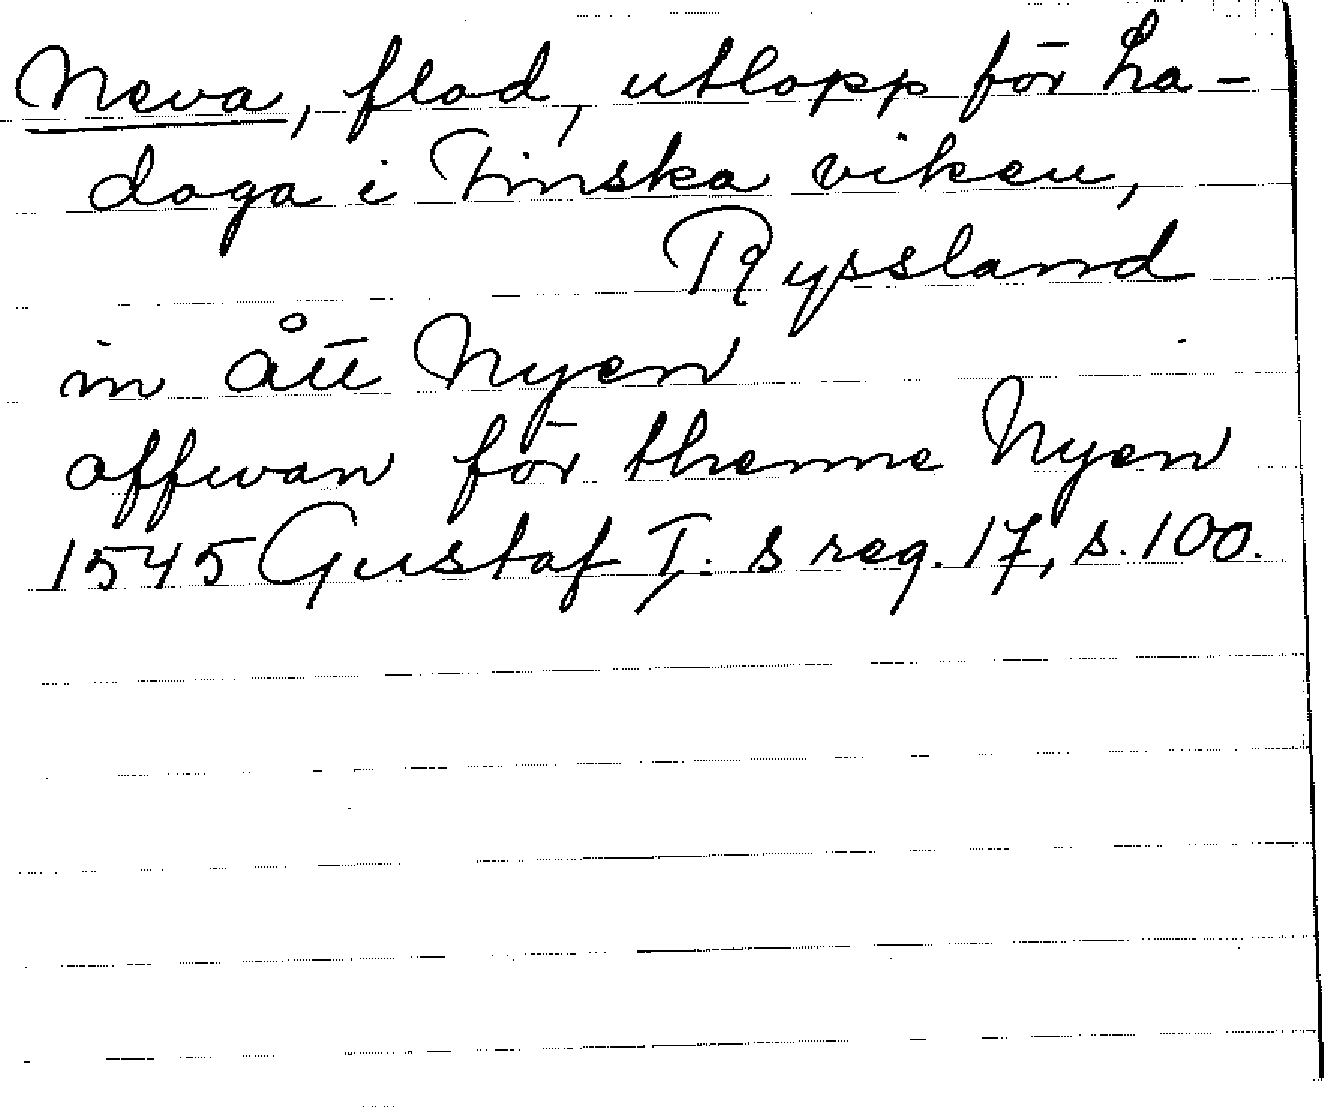 Neva, flod, utlopp för La-
doga i Finska viken,
Ryssland
in ått Nyen
offwan för thenne Nyen
1545 Gustaf I:s reg. 17, s. 100.